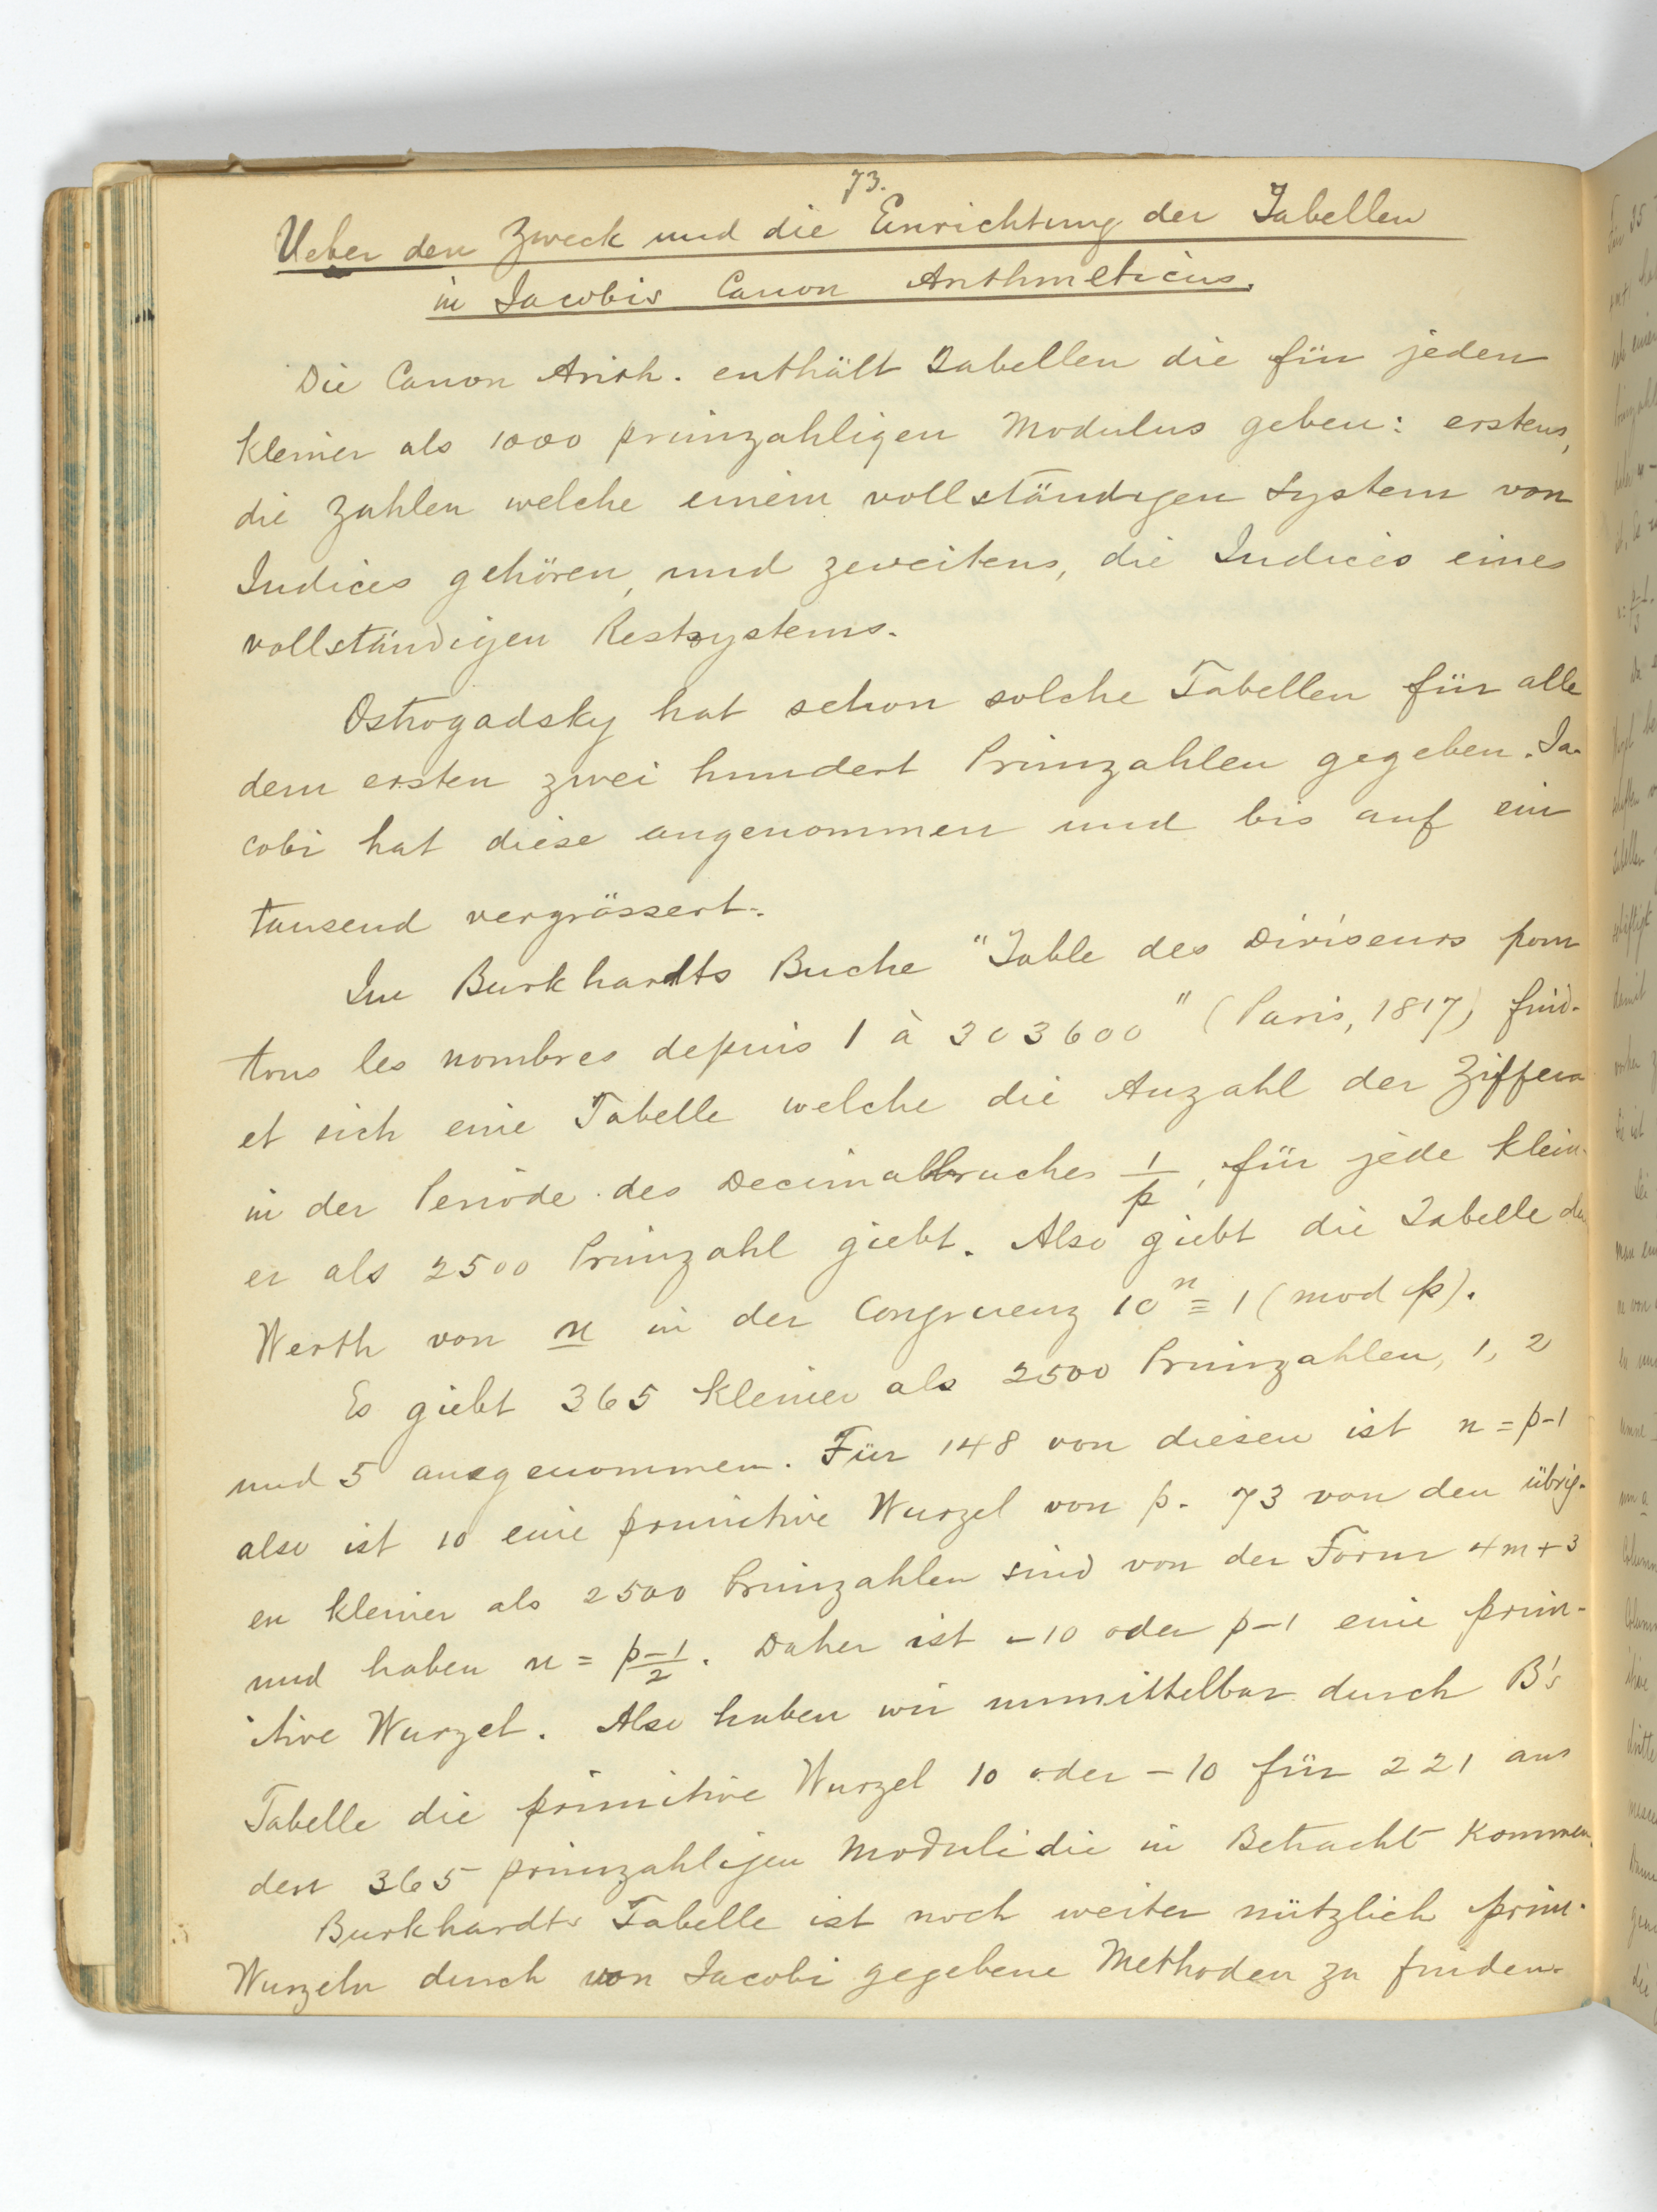 73.
Ueber den Zweck und die Einrichtung der Tabellen
in Jacobis Canon Arithmeticus.
Die Canon Arith. enthält Tabellen die für jeden
kleiner als 1000 primzahligen Modulus geben: erstens,
die Zahlen welche einem vollständigen System von
Indices gehören, und zweitens, die Indices eines
vollständigen Restsystems.
Ostrogadsky hat schon solche Tabellen für alle
dem ersten zwei hundert Primzahlen gegeben. Ja-
cobi hat diese angenommen und bis auf ein
tausend vergrössert.
Im Burkhardts Buche "Table des Diviseurs pour
tous les nombres depuis 1 à 303600" (Paris, 1817) find-
et sich eine Tabelle welche die Anzahl der Ziffern
in der Periode des Decimalbruches 1/p, für jede klein-
er als 2500 Primzahl giebt. Also giebt die Tabelle den
Werth von n in der Congruenz 10^n ≡ 1 (mod p).
Es giebt 365 kleiner als 2500 Primzahlen, 1, 2
und 5 ausgenommen. Für 148 von diesen ist n = p-1
also ist 10 eine primitive Wurzel von p. 73 von den übrig-
en kleiner als 2500 Primzahlen sind von der Form 4m+3
und haben n = p-1/2. Daher ist -10 oder p-1 eine prim-
itive Wurzel. Also haben wir unmittelbar durch B's
Tabelle die primitive Wurzel 10 oder -10 für 221 aus
den 365 primzahligen Moduli die in Betracht kommen.
Burkhardts Tabelle ist noch weiter nützlich prim.
Wurzeln durch von Jacobi gegebene Methoden zu finden.